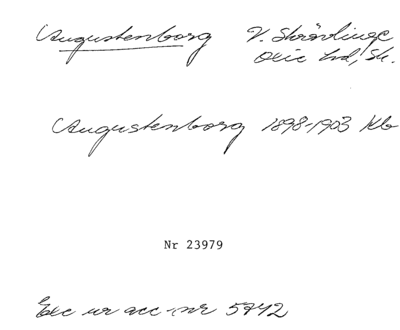 Augustenborg V. Skrävlinge
Oxie hd, Sk.
Augustenborg 1898-1903 Kb
Nr 23979
Exc ur acc-nr 5742